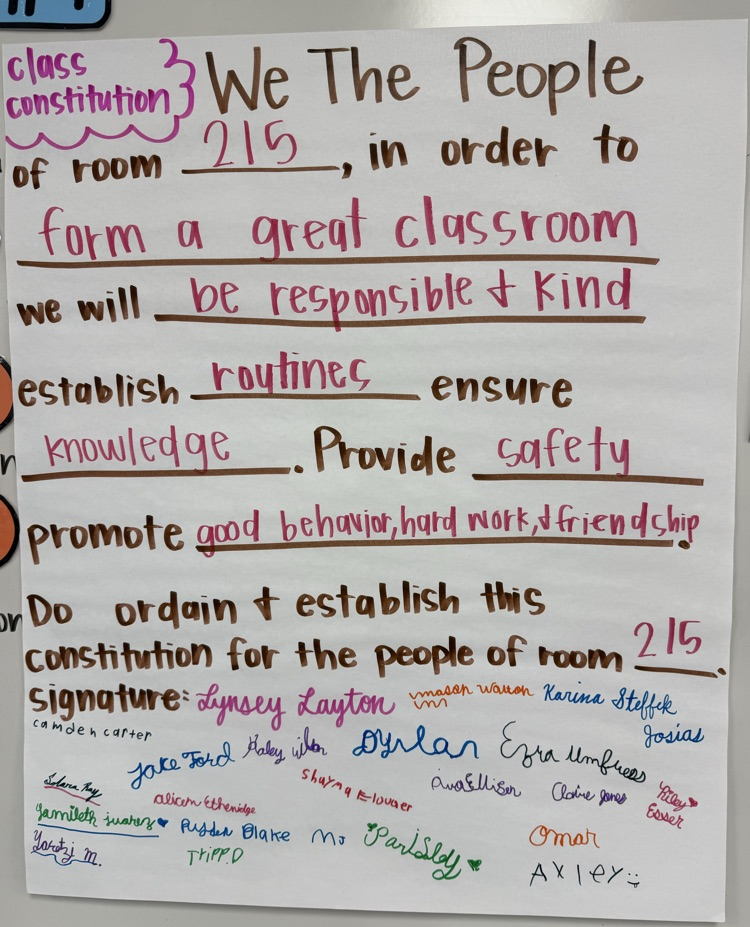 class
constitution
We The People
of room 215, in order to
form a great classroom
we will be responsible & kind
establish routines ensure
knowledge. Provide safety
promote good behavior, hard work, & friendship.
Do ordain & establish this
constitution for the people of room 215.
signature: Lynsey Layton mason Karina Steffek
camden carter Josias
Jake Ford Haley Dyllan Ezra Umfress
Shayna Ava Ellison Claire Jones Riley
Esser
Yamileth juarez alicen Ethenidge
Blake MJ Omar
Yaretzi M. TripP.D Axley